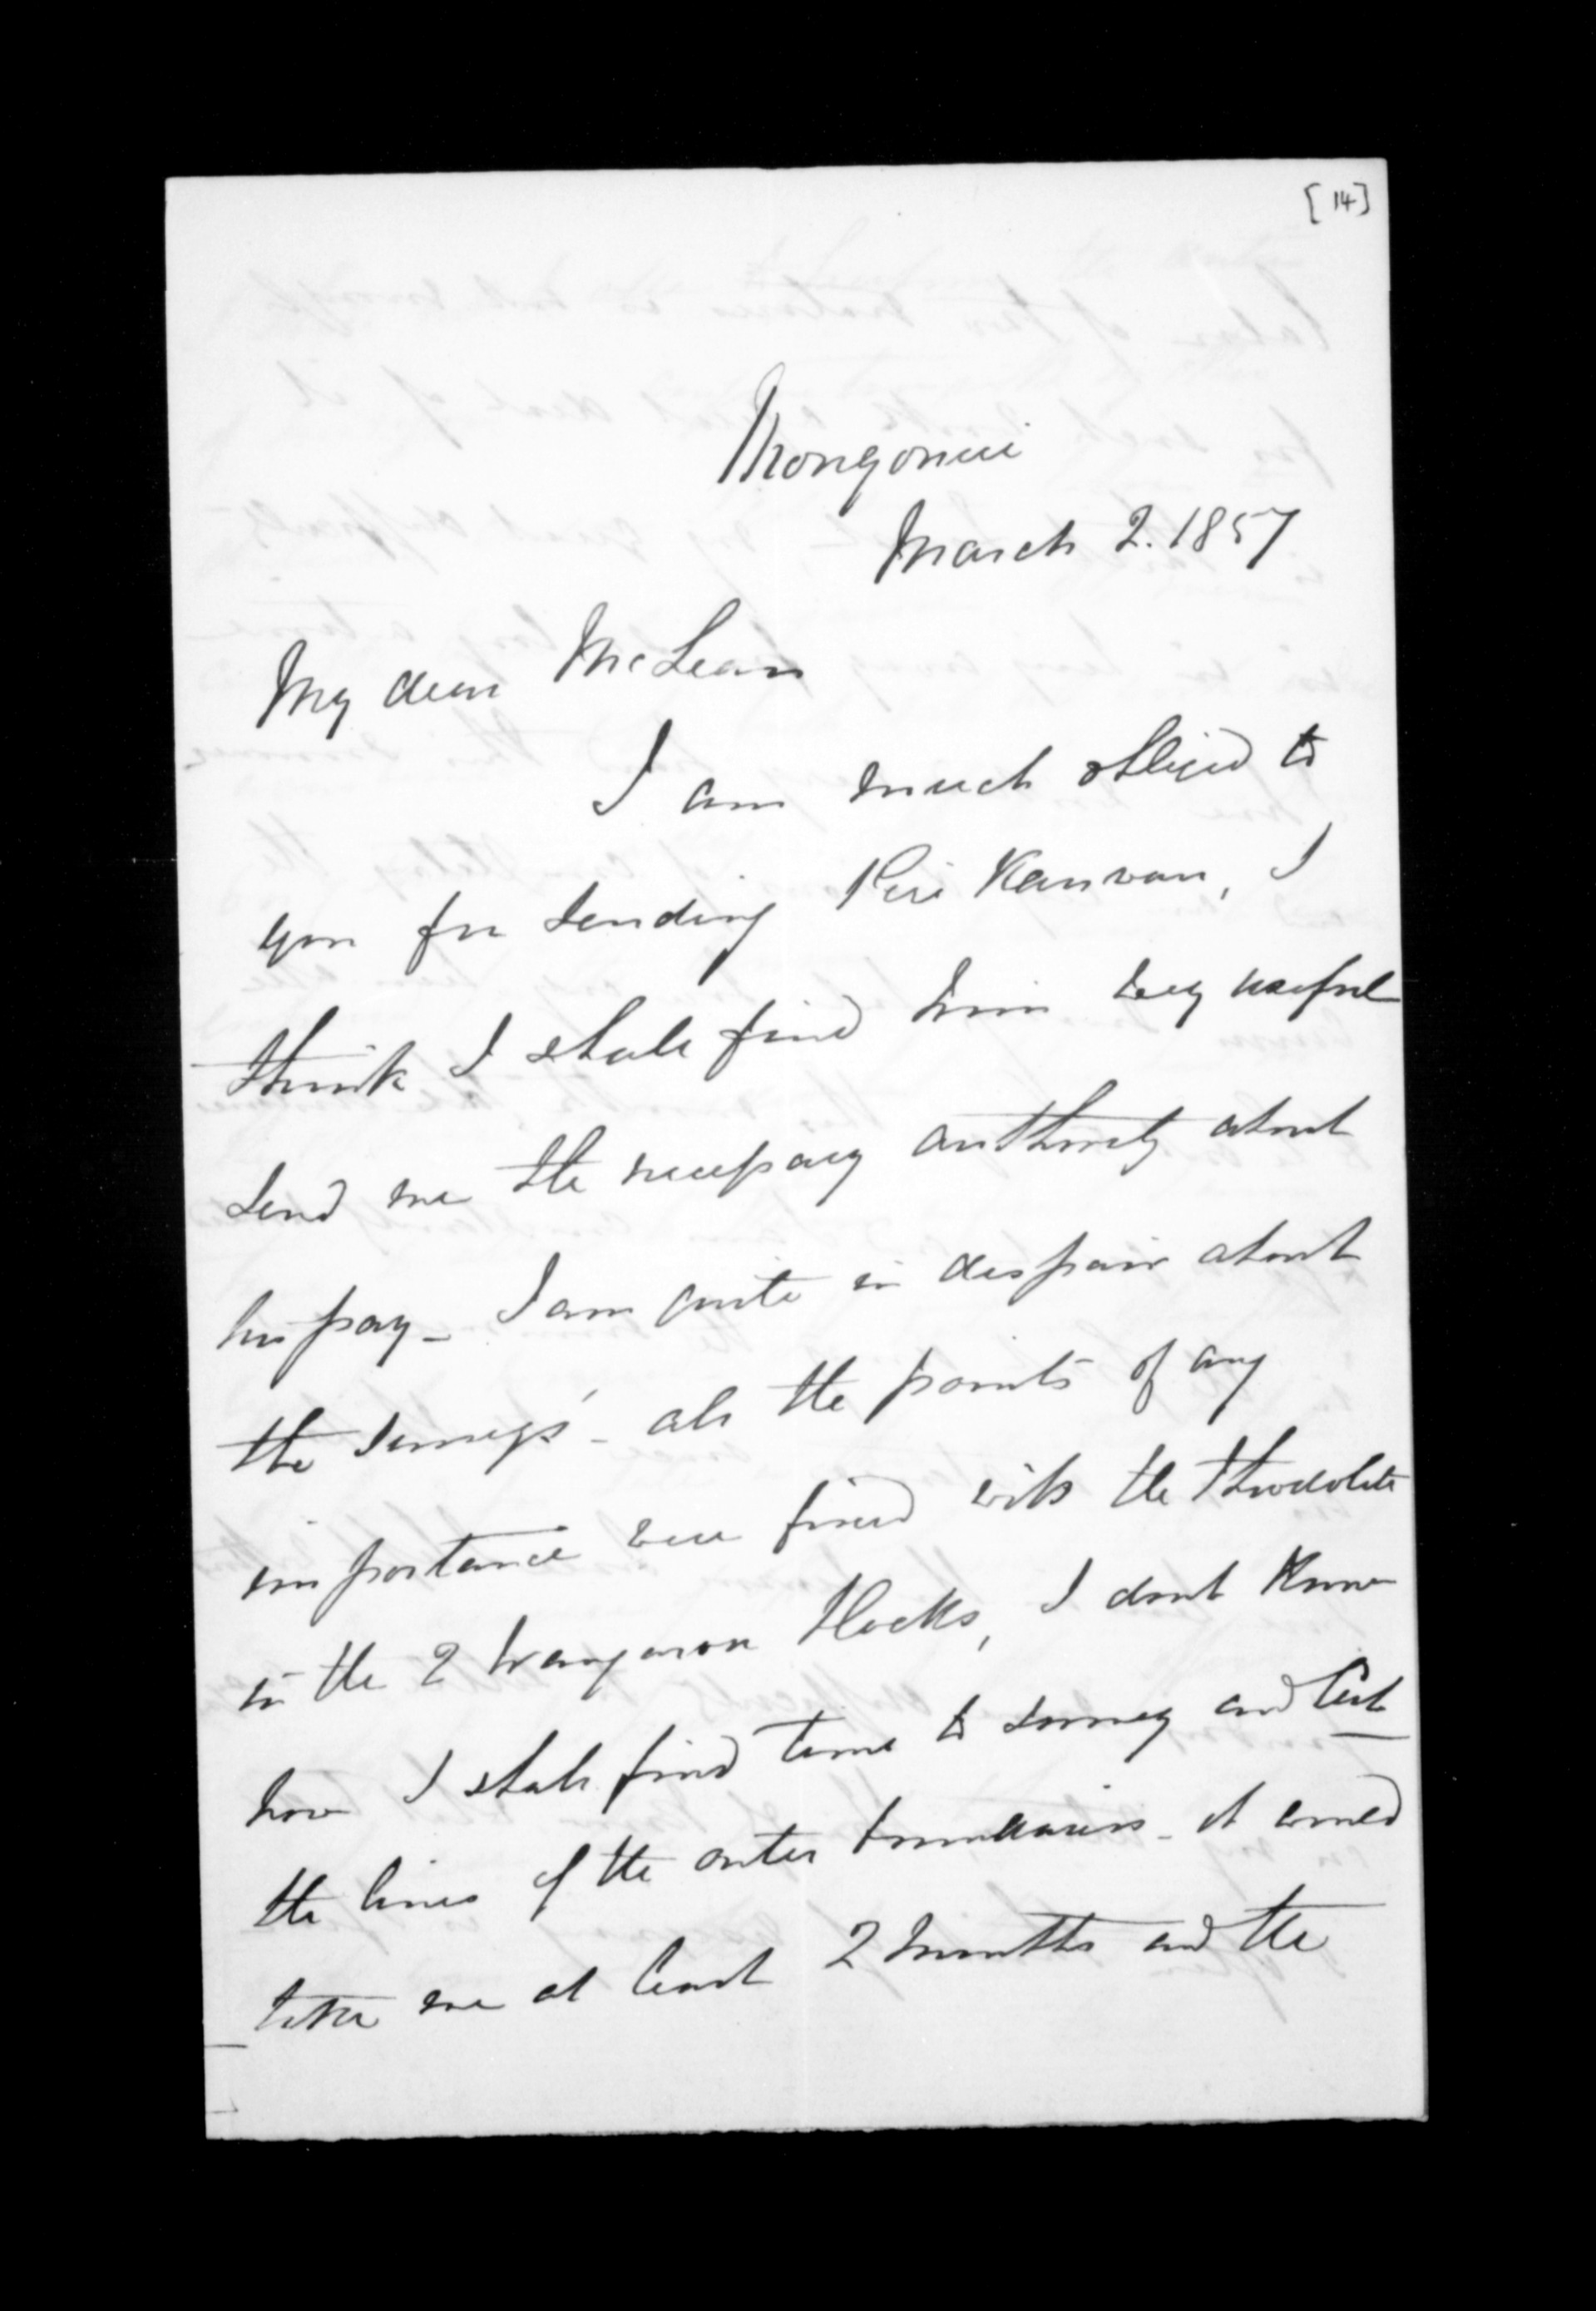 [14]
Mongonui
March 2. 1857
My dear McLean
I am much obliged to
you for sending Piri Kawau, I
think I shall find him very useful
send me the necessary authority about
his pay _ I am quite in despair about
the surveys _ all the points of any
importance were fixed with the Theodolite
in the 2 Wangaroa blocks, I dont know
how I shall find time to survey and cut
the lines of the outer boundaries _ it would
take me at least 2 months and the